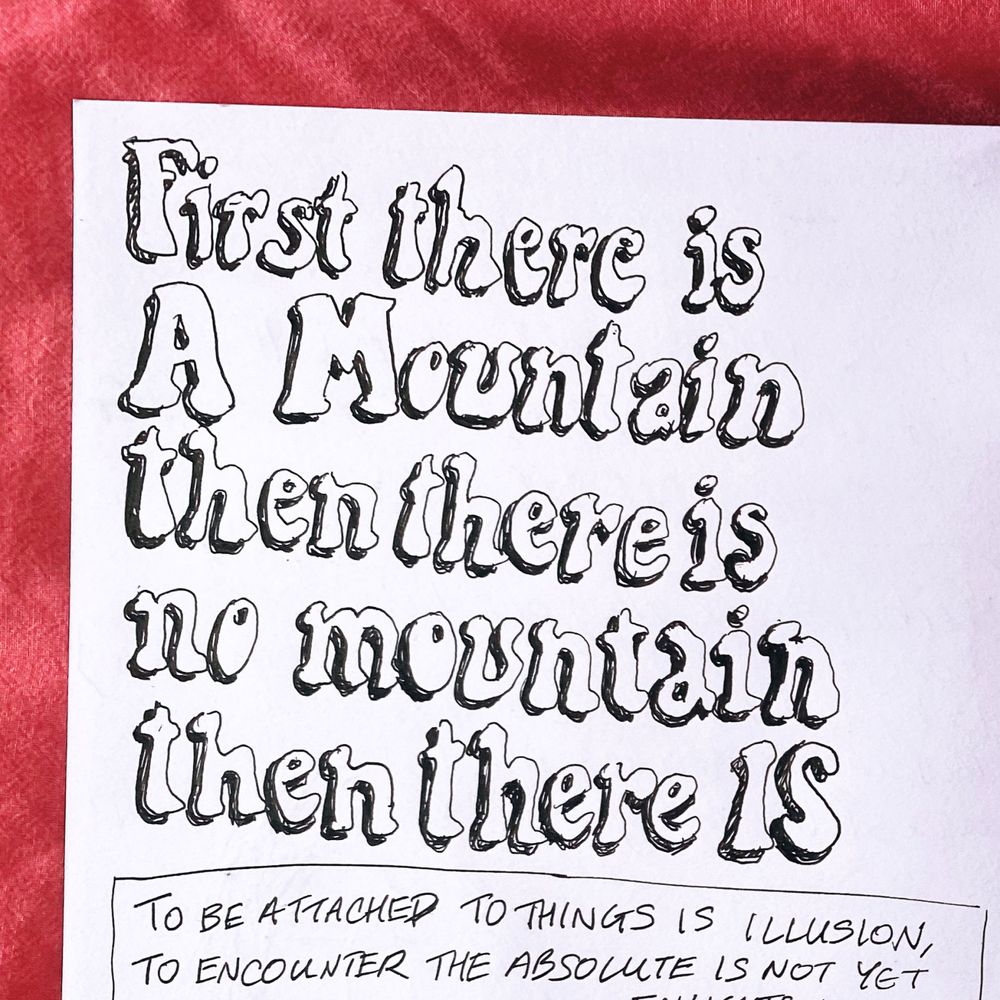 First there is
A Mountain
then there is
no mountain
then there IS
TO BE ATTACHED TO THINGS IS ILLUSION,
TO ENCOUNTER THE ABSOLUTE IS NOT YET